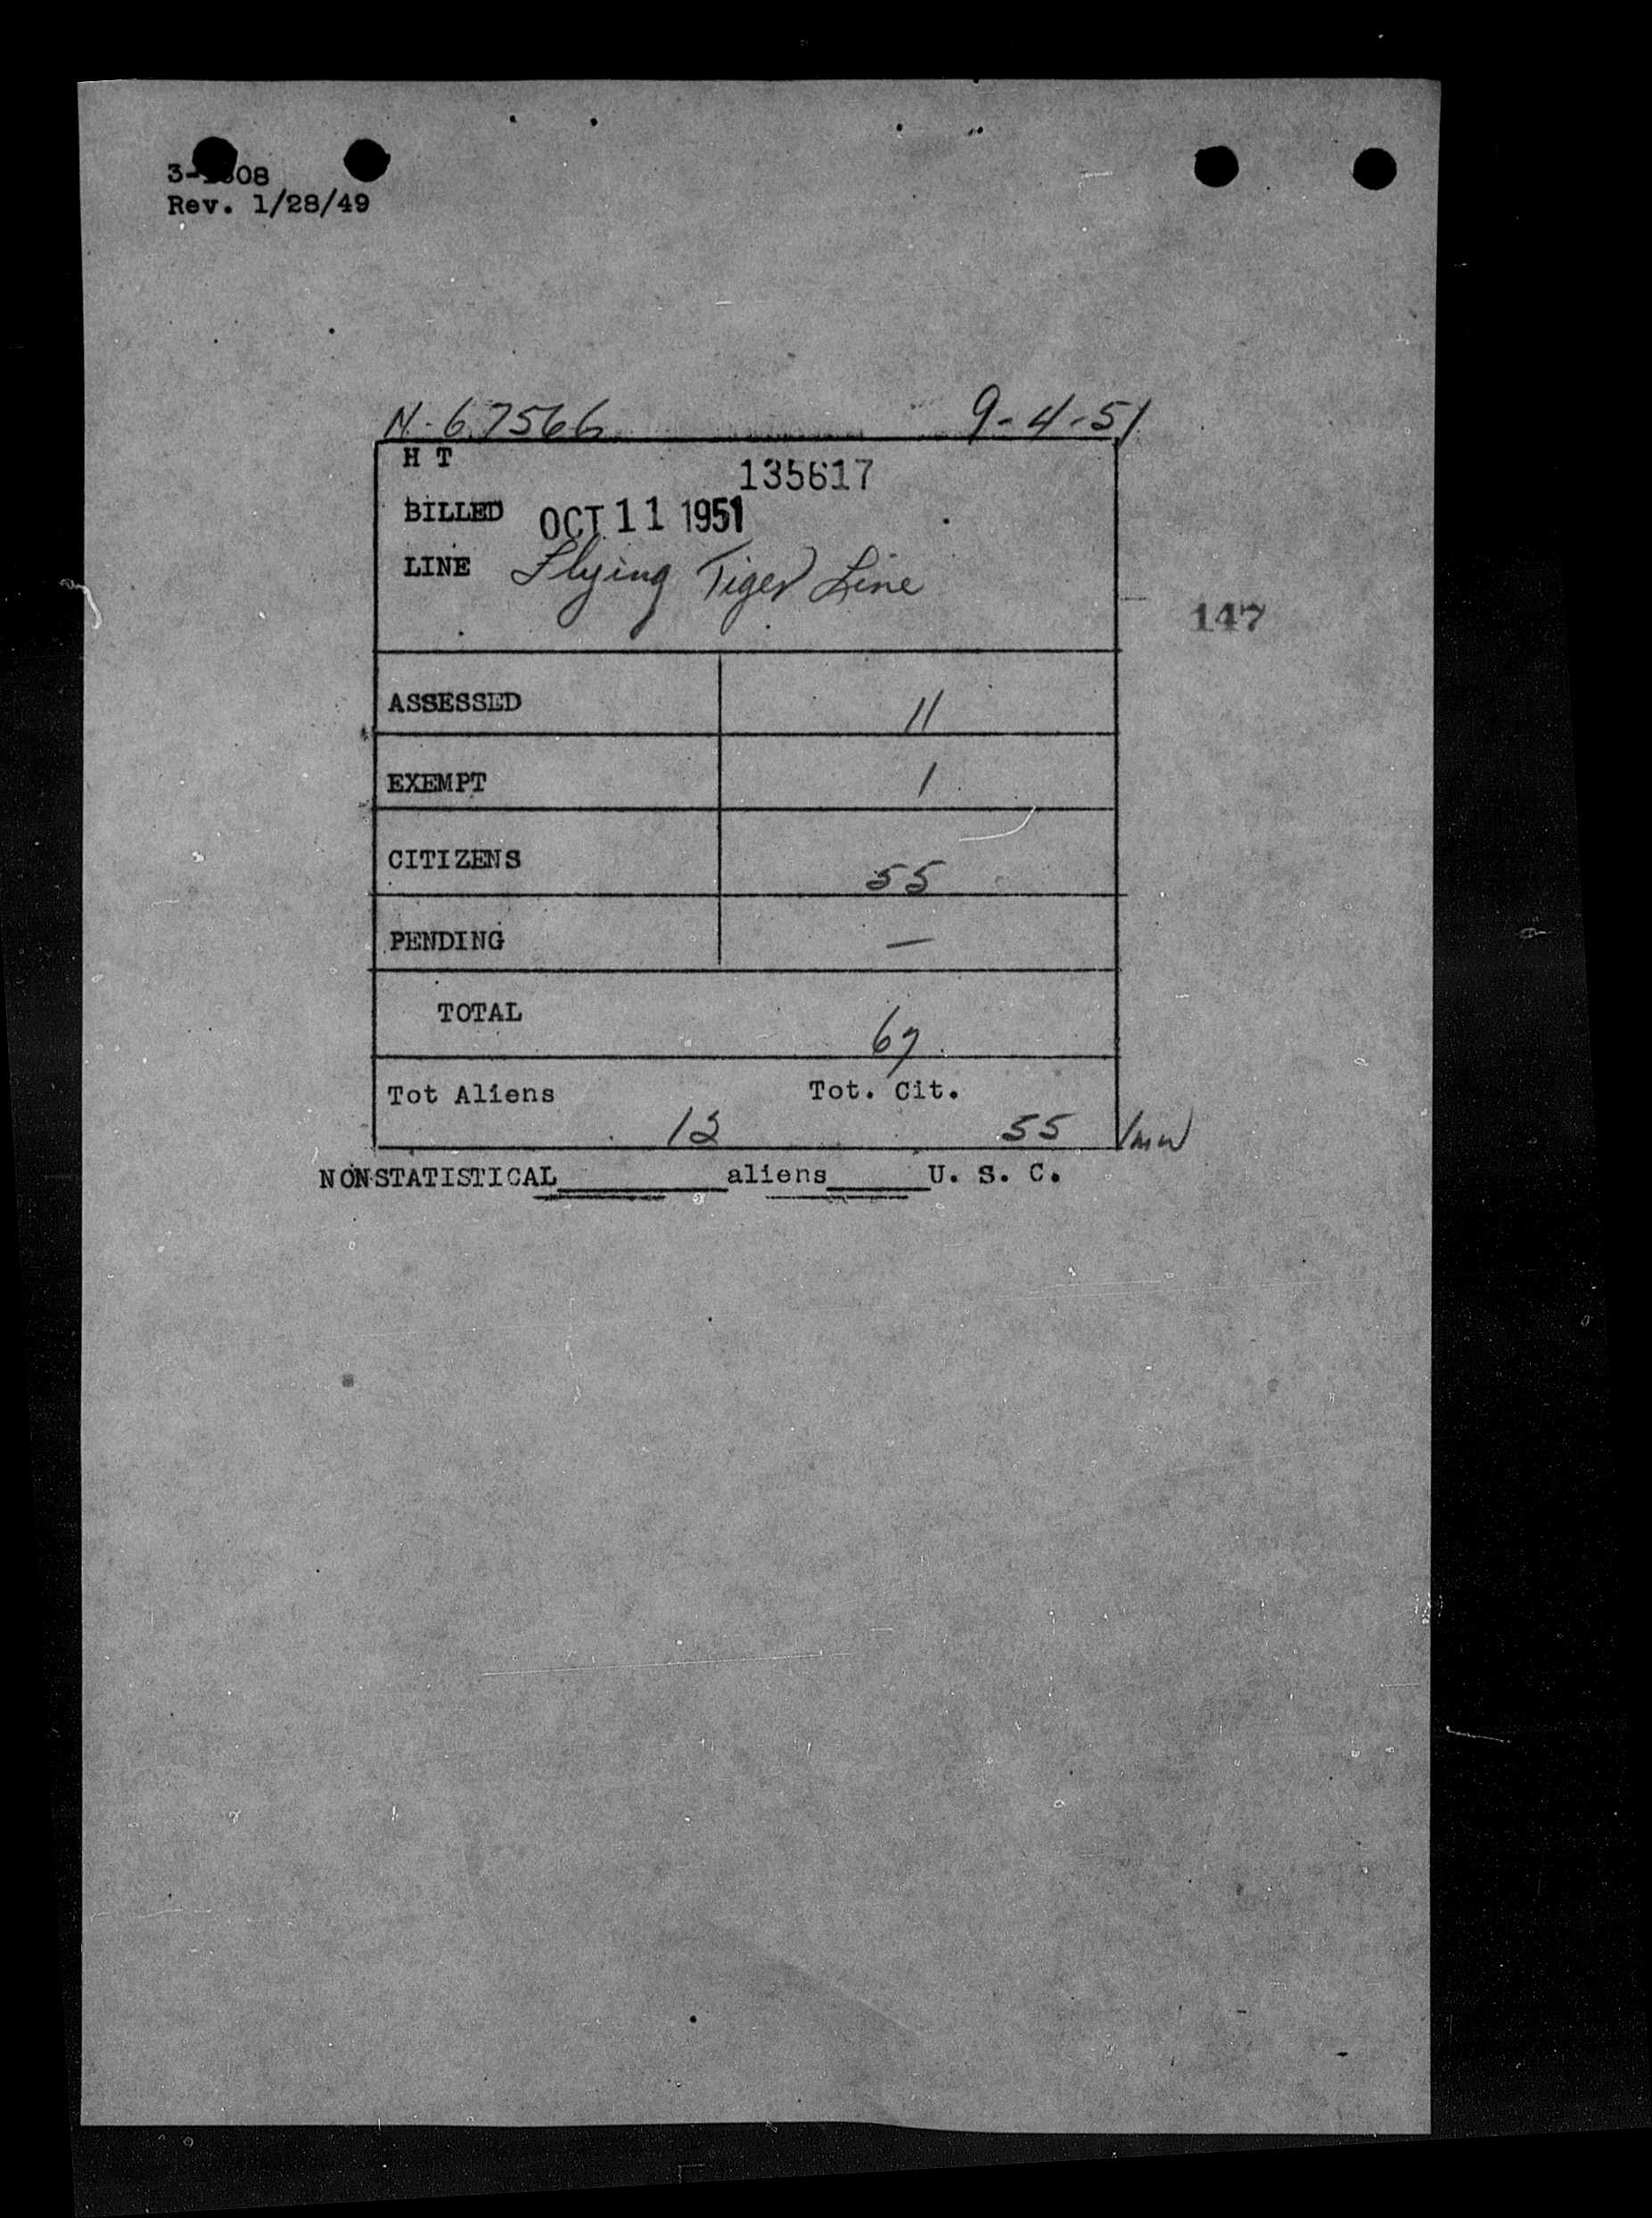 08
Rev. 1/28/49
N-67566 9-4-51
H T 135617
BILLED OCT 11 1951
LINE Flying Tiger Line
147
ASSESSED 11
EXEMPT 1
CITIZENS 55
PENDING —
TOTAL 67
Tot Aliens Tot. Cit.
12 55
NONSTATISTICAL________aliens_____U. S. C.